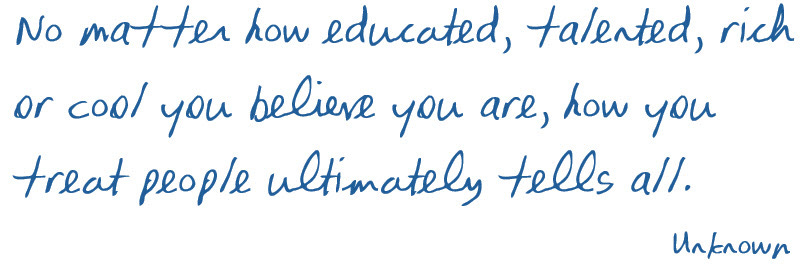 No matter how educated, talented, rich
or cool you believe you are, how you
treat people ultimately tells all.
Unknown